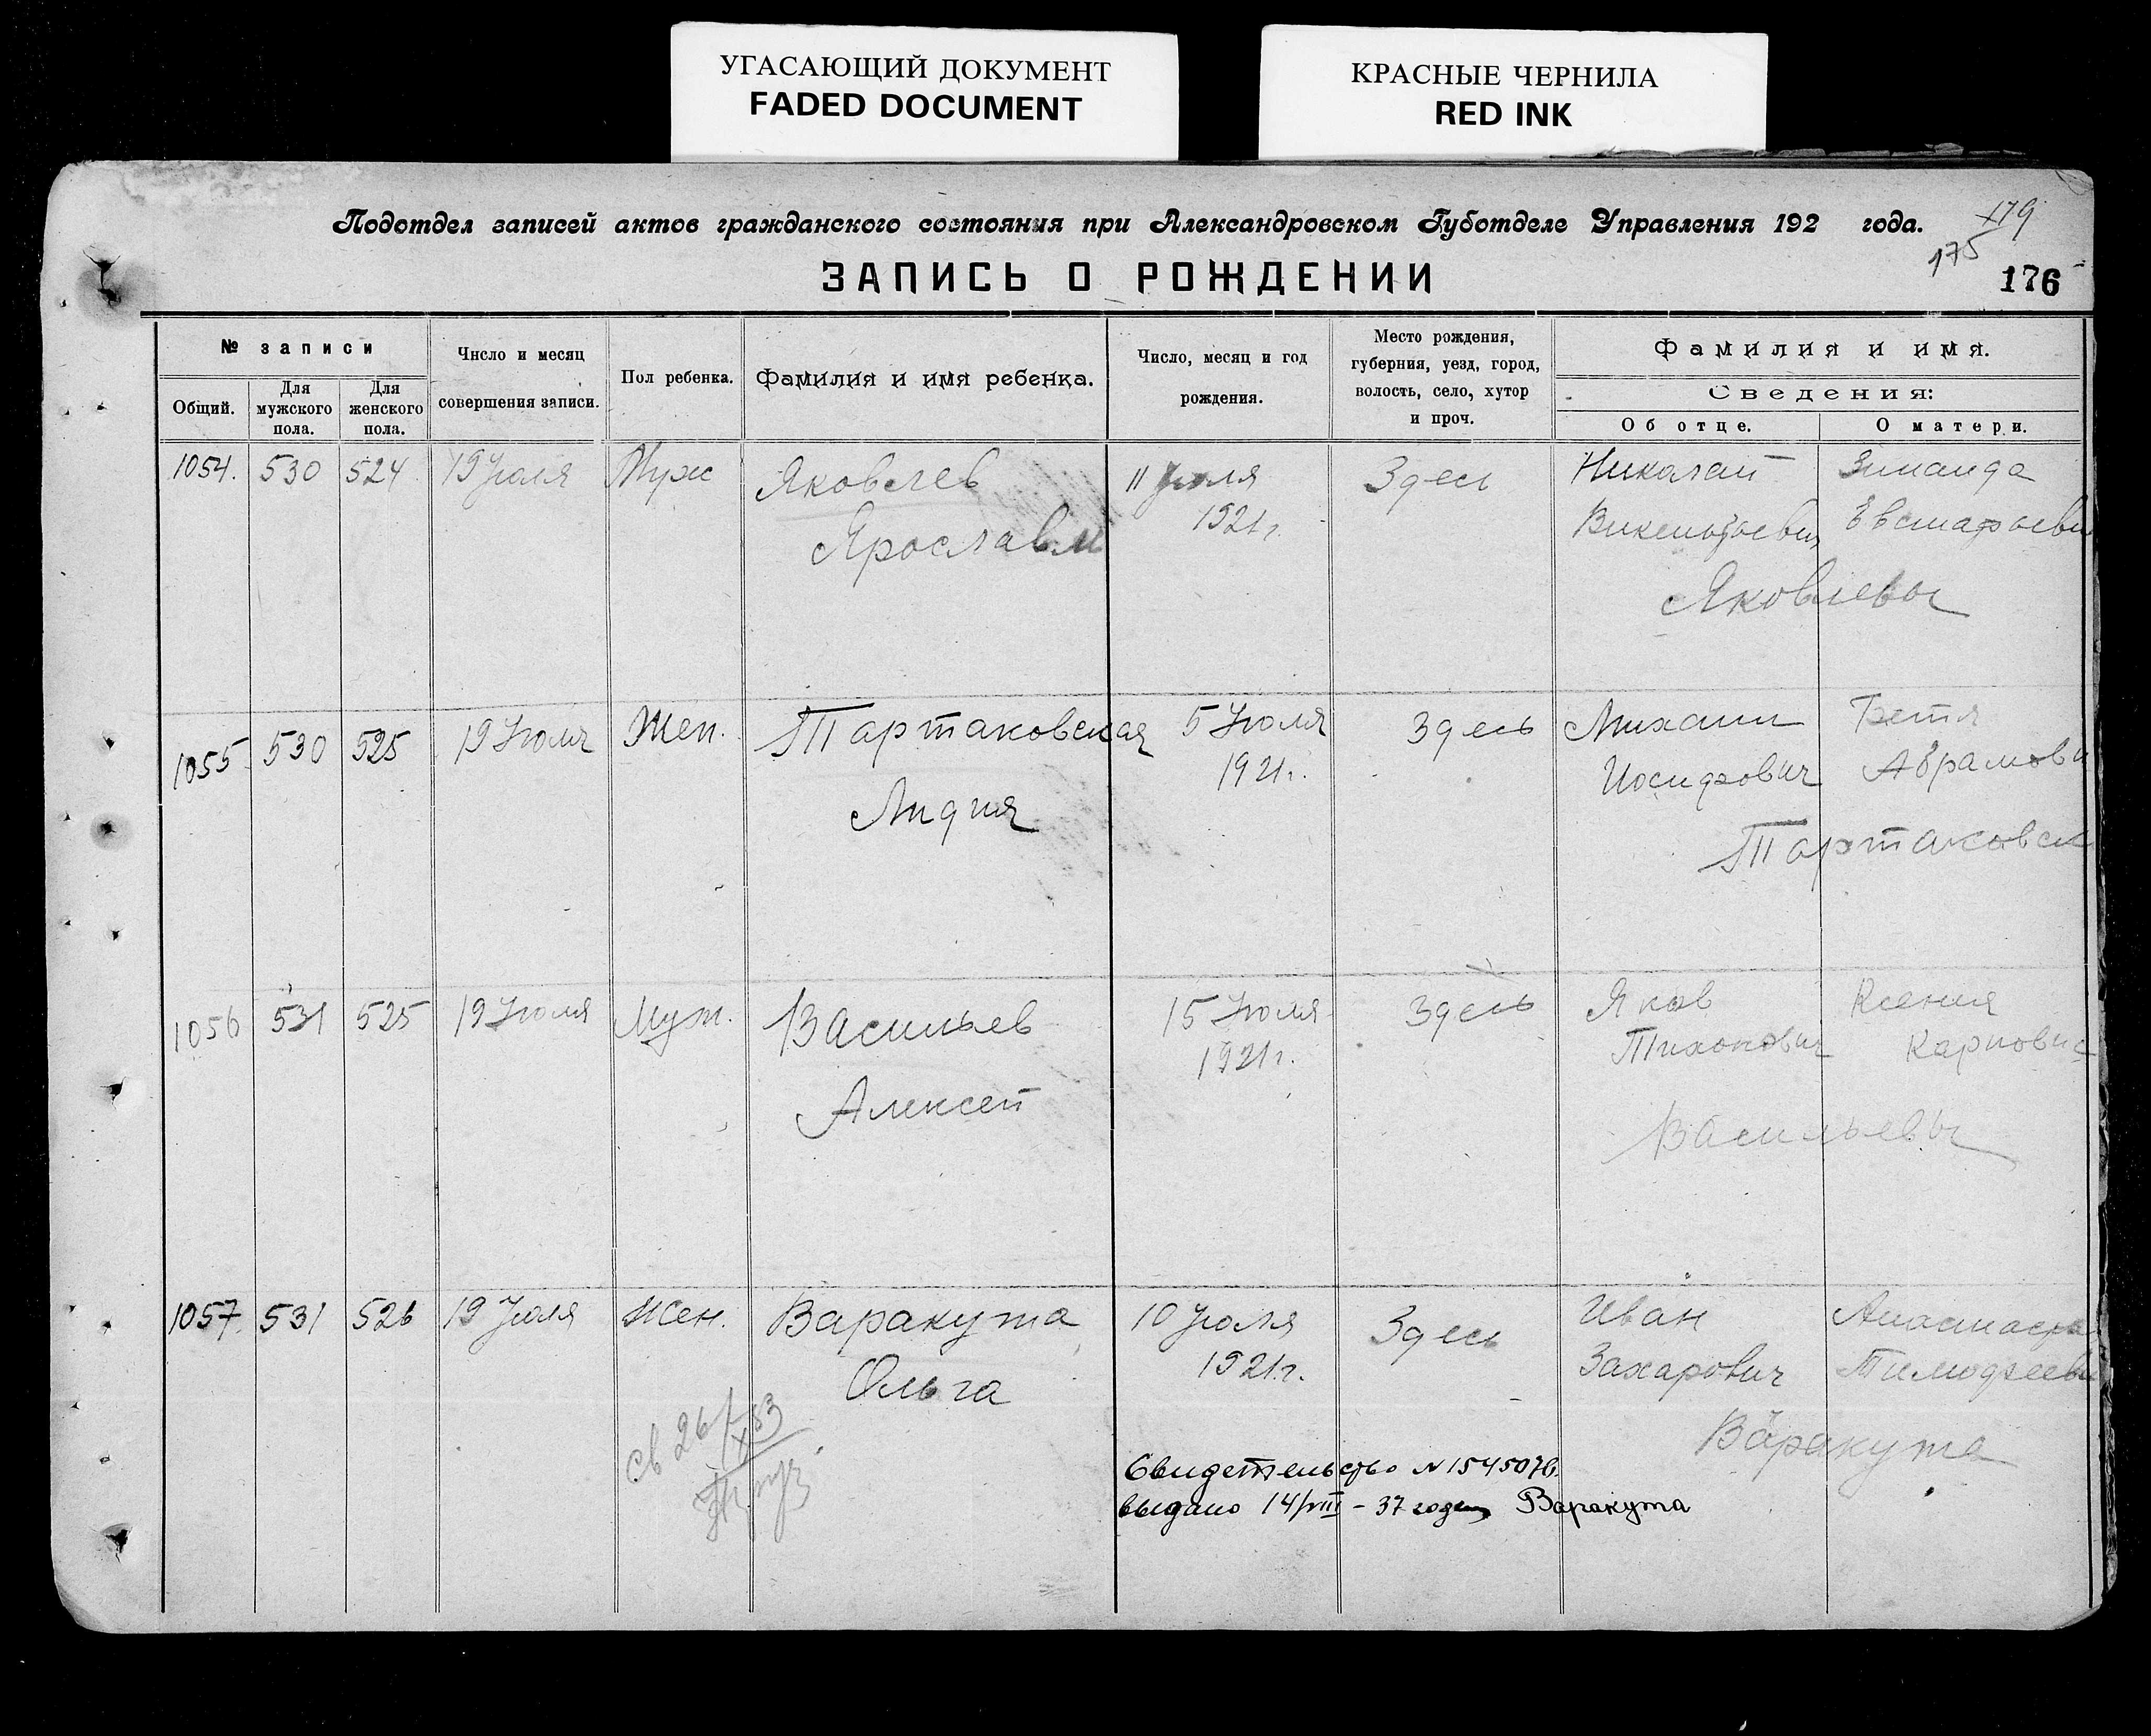 УГАСАЮЩИЙ ДОКУМЕНТ
FADED DOCUMENT
КРАСНЫЕ ЧЕРНИЛА
RED INK
Подотдел записей актов гражданского состояния при Александровском Губотделе Управления 192 года.
179
175
176
ЗАПИСЬ О РОЖДЕНИИ
№ записи
Общий.
Для мужского пола.
Для женского пола.
Число и месяц совершения записи.
Пол ребенка.
Фамилия и имя ребенка.
Число, месяц и год рождения.
Место рождения, губерния, уезд, город, волость, село, хутор и проч.
Фамилия и имя.
Сведения:
Об отце.
О матери.
1054. 530 524 19 Июля Муж Яковлев 11 Июля Здесь Николай Зинаида
Ярослав 1921 г.
Яковлевы
1055 530 525 19 Июля Жен. Тартаковская 5 Июля Здесь Михаил
Лидия 1921 г. Иосифович Абрамовн
Тартаковск
1056 531 525 19 Июля Муж. Васильев 15 Июля Здесь Яков Ксения
Алексей 1921 г. Тихонович Карповн
Васильевы
1057. 531 526 19 Июля Жен. Варакута 10 Июля Здесь Иван Анастасия
Ольга 1921 г. Захарович Тимофеевн
Варакута
Св 26/X 53
Свидетельство N 154507
выдано 14/VIII - 37 года Варакута